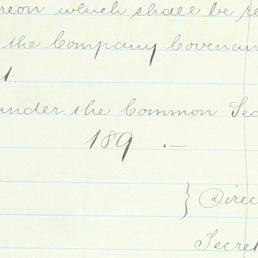 reon which shall be re
the Company Covenan
t
under the Common Sea
189 .—
} Direc
Secret